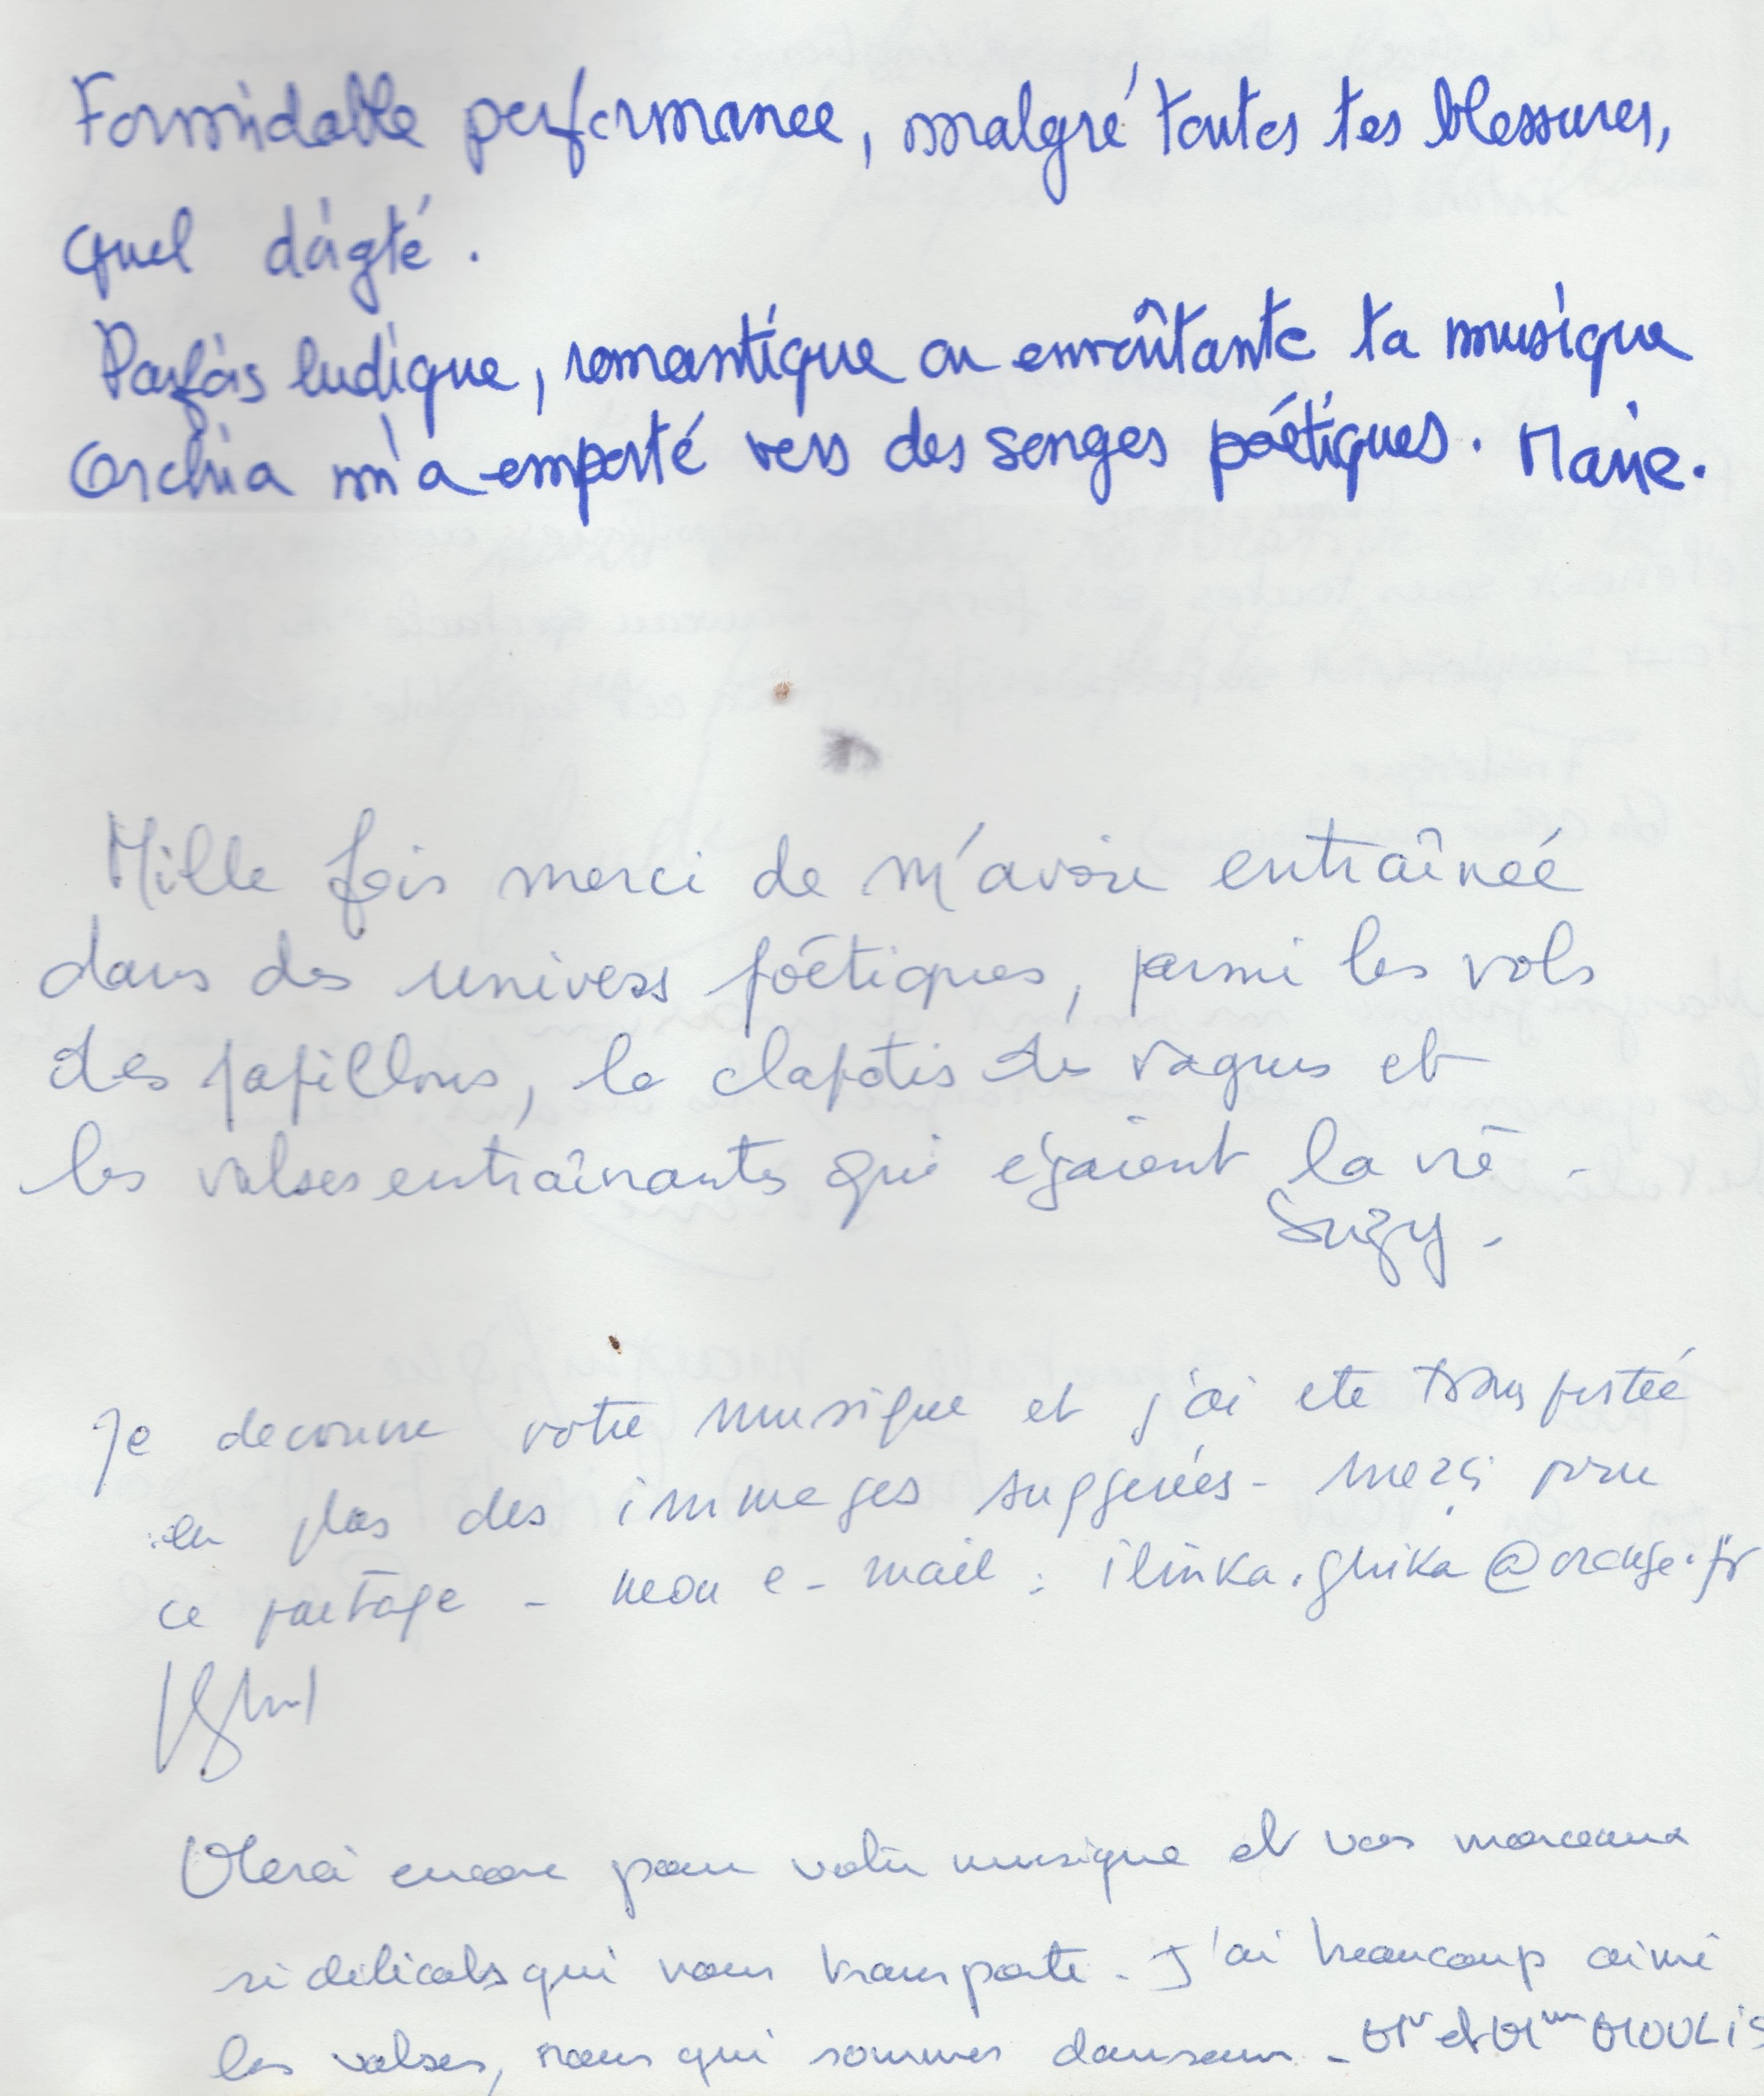 Formidable performance, malgré toutes tes blessures,
quel doigté.
Parfois ludique, romantique ou envoûtante ta musique
Orchia m'a emporté vers des songes poétiques. Marie.
Mille fois merci de m'avoir entraînée
dans des univers poétiques, parmi les vols
des papillons, le clapotis des vagues et
les valses entraînantes qui égaient la vie -
Suzy -
Je decouvre votre musique et j'ai ete transportée
en plus des immages suggerées - merci pour
ce partage - mon e-mail : ilinka.ghika@orange.fr
Merci encore pour votre musique et vos morceaux
si délicats qui nous transporte - J'ai beaucoup aimé
les valses, nous qui sommes danseurs - Mr et Mme MOULIS